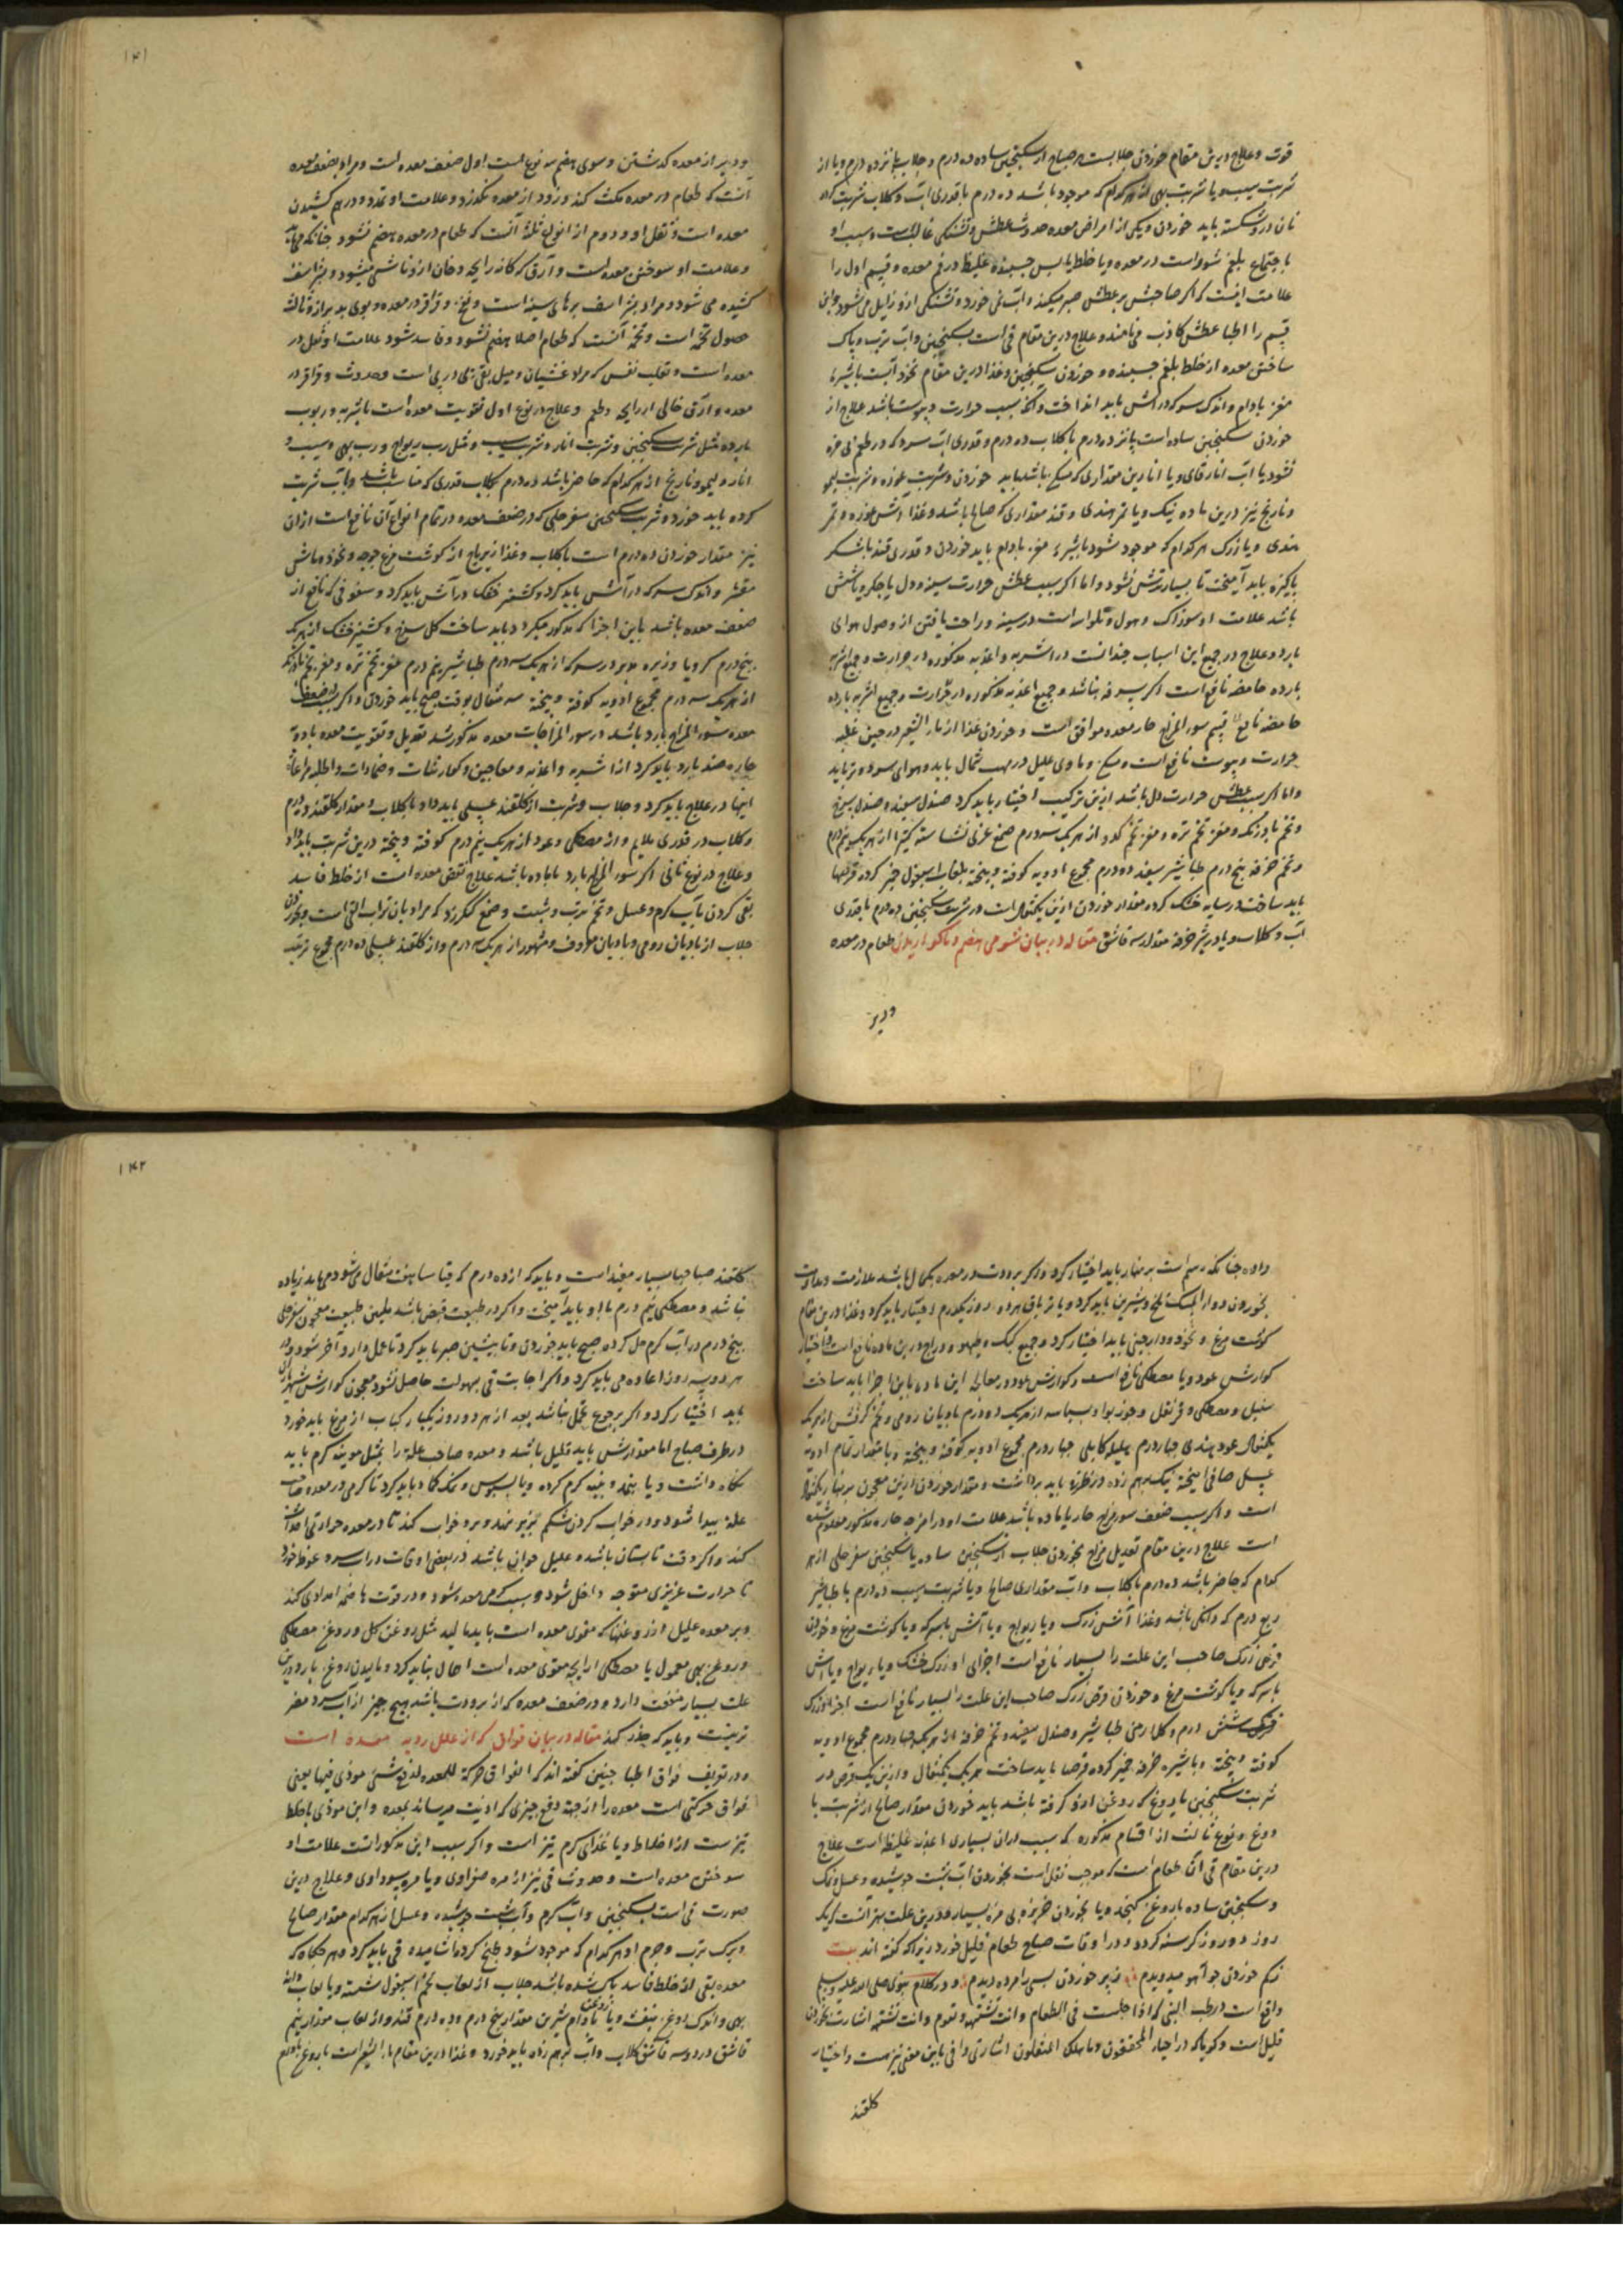 قوت و علاج درین مقام خوردن جلابست هر صباح از سکنجبین ساده ده درم و جلاب پانزده درم و یا از
شربت سیب و یا شربت بهی از هر کدام که موجود باشد ده درم با قدری آب و کلاب شربت کرده
نان در و شکسته باید خوردن و یکی از امراض معده حدوث عطش و تشنکی غالبست و سبب او
یا اجتماع بلغم شور است در معده و یا خلط یابس چسبنده غلیظ در فم معده و قسم اول را
علامت اینست که اکر صاحبش بر عطش صبر میکند و آب نمی خورد و تشنکی ازو زایل می شود و این
قسم را اطبا عطش کاذب می نامند و علاج درین مقام قی است بسکنجبین و آب ترب و پاک
ساختن معده از خلط بلغم چسبنده و خوردن سکنجبین و غذا درین مقام نخود آبست با شیره
مغز بادام و اندک سرکه در آش باید انداخت و آنکه بسبب حرارت و یبوست باشد علاج از
خوردن سکنجبین ساده است پانزده درم با کلاب ده درم و قدری آب سرد که در طعم بی مزه
نشود یا آب انار و یا انارین مقداری که صالح باشد باید خوردن و شربت غوره و شربت لیمو
و نارنج نیز درین ماده نیک و یا تمر هندی و قند مقداری که صالح باشد و غذا آش غوره و تمر
هندی و یا زرک هر کدام که موجود شود با شیره مغز بادام باید خوردن و قدری قند یا شکر
پاکیزه باید آمیخت تا بسیار ترش نشود و اما اکر سبب عطش حرارت سینه و دل یا جکر و یا شش
باشد علامت او سوزاک و هول و تلواسه است در سینه و راحت یافتن از وصول هوای
بارد و علاج در جمیع این اسباب چنانست در اشربه و اغذیه مذکوره در حرارت و جمیع اشربه
بارده حامضه نافع است اکر سرفه نباشد و جمیع اغذیه مذکوره در حرارت و جمیع اشربه بارده
حامضه نافع قسم سوء المزاج حار معده موافق است و خوردن غذا از نار الشعیر در حین غلبه
حرارت و یبوست نافع است و مسکن و ماوی علیل در مهب شمال باید و هوای سرد و تر باید
و اما اکر سبب عطش حرارت دل باشد ازین ترکیب اختیار باید کرد صندل سفید و صندل سرخ
و تخم بادرنک و مغز تخم تره و مغز تخم کدو از هر یک سه درم صمغ عربی نشاسته کتیرا از هر یک نیم درم
و تخم خرفه پنج درم طباشیر سفید ده درم مجموع ادویه کوفته و بیخته بلعاب اسبغول خمیر کرده قرصها
باید ساخت در سایه خشک کرده مقدار خوردن ازین یکمثقال است در شربت سکنجبین ده درم با قدری
آب و کلاب و یا در شیر خرفه مقدار سه قاشق مقاله در بیان شومی هضم و ناکواریدن طعام در معده
و دیر
۱۴۱
و دیر از معده کذشتن و سوی هضم سه نوع است اول ضعف معده است و مراد بضعف معده
آنست که طعام در معده مکث کند و زود از معده نکذرد و علامت او تمدد و درهم کشیدن
معده است و ثقل او و دوم از انواع ثلثه آنست که طعام در معده هضم نشود چنانکه می باید
و علامت او سوختن معده است و آرق که کانه رایحه دخان ازو ناشی میشود و شراسف
کشیده می شود و مراد بشراسف سرهای سینه است و نفخ و قراقر در معده و بوی بد براز و ثالث
حصول تخمه است و تخمه آنست که طعام اصلا هضم نشود و فاسد شود علامت او ثقل در
معده است و تقلب نفس که مراد غشیان و میل بقی پی در پی است و حدوث و قراقر در
معده و آرق خالی از رایحه و طعم و علاج در نوع اول تقویت معده است باشربه و ربوب
بارده مثل شربت سکنجبین و شربت انار و شربت سیب و مثل رب ریواج و رب بهی و سیب و
انار و لیمو و نارنج از هر کدام که حاضر باشد ده درم بکلاب قدری که مناسب باشد و بآب شربت
کرده باید خورد و شربت سکنجبین سفرجلی که در ضعف معده در تمام انواع آن نافع است ازان
نیز مقدار خوردن ده درم است با کلاب و غذا زیرباج از کوشت مرغ جوجه و نخود و ماش
مقشر و اندک سرکه در آش باید کرد و کشنیز خشک در آش باید کرد و سفوفی که نافع از
ضعف معده باشد باین اجزا که مذکور میکردد باید ساخت کل سرخ و کشنیز خشک از هر یک
پنج درم کرویا و زیره مدبر در سرکه از هر یک سه درم طباشیر پنج درم مغز تخم تره و مغز تخم بادرنک
از هر یک سه درم مجموع ادویه کوفته و بیخته سه مثقال بوقت صبح باید خوردن و اکر سبب ضعف
معده سوء المزاج بارد باشد در سوء المزاجات معده مذکور شد تعدیل و تقویت معده بادویه
حاره ضد بارد باید کرد از اشربه و اغذیه و معاجین و کوارشات و ضمادات و اطلیه مراعات
اینها در علاج باید کرد و جلاب و شربت از کلقند عسلی باید داد با کلاب و مقدار کلقند ده درم
و کلاب در قدری ملایم و از مصطکی و عود از هر یک نیم درم کوفته و بیخته درین شربت باید داد
و علاج در نوع ثانی اکر سوء المزاج بارد با ماده باشد علاج نقض معده است از خلط فاسد
بقی کردن بآب کرم و عسل و تخم ترب و شبت و صمغ کنکرزد که مراد بان تراب القی است و بخوردن
جلاب از بادیان رومی و بادیان معروف و مشهور از هر یک سه درم و از کلقند عسلی ده درم مجموع ترتیب
داده چنانکه رسم است بر نهار باید اختیار کرد و اکر برودت در معده بکمال باشد ملازمت و مداومت
بخوردن دواء المسک تلخ و شیرین باید کرد و یا تریاق هر ده روز یکدرم اختیار باید کرد و غذا درین مقام
کوشت مرغ و نخود و دارچینی باید اختیار کرد و جمیع کبک و طیهو و دراج درین ماده نافع است و اختیار
کوارش عود و یا مصطکی نافع است و کوارش عود در معالجه این ماده باین اجزا باید ساخت
سنبل و مصطکی و قرنفل و جوزبوا و بسباسه از هر یک ده درم بادیان رومی و تخم کرفس از هر یک
یکمثقال عود هندی چهار درم هلیله کابلی چهار درم مجموع ادویه کوفته و بیخته و با مقدار تمام ادویه
عسل صافی آمیخته نیک بر هم زده در ظرف باید برداشت و مقدار خوردن ازین معجون بر نهار یکمثقال
است و اکر سبب ضعف سوء مزاج حار با ماده باشد علامت او در امزجه حاره مذکور معلوم شده
است علاج درین مقام تعدیل مزاج بخوردن جلاب از سکنجبین ساده یا سکنجبین سفرجلی از هر
کدام که حاضر باشد ده درم با کلاب و آب مقداری صالح و یا شربت سیب ده درم با طباشیر
ربع درم که دانکی باشد و غذا آش زرک و یا ریواج و یا آش با سرکه و یا کوشت مرغ و خوردن
قرص زرک صاحب این علت را بسیار نافع است اجزای او زرک خشک و یا ریواج و یا آش
با سرکه و یا کوشت مرغ و خوردن قرص زرک صاحب این علت را بسیار نافع است اجزا او زرک
خشک شش درم و کل ارمنی طباشیر و صندل سفید و تخم خرفه از هر یک چهار درم مجموع ادویه
کوفته و بیخته و با شیره خرفه خمیر کرده قرصها باید ساخت هر یک یکمثقال و ازین یک قرص در
شربت سکنجبین با دوغ که روغن ازو کرفته باشد باید خوردن مقدار صالح از شربت با
دوغ و نوع ثالث از اقسام مذکوره که سبب ازان بسیاری اغذیه غلیظه است علاج
درین مقام قی آن طعام است که موجب ثقل است بخوردن آب شبت جوشیده و عسل و نمک
و سکنجبین ساده با روغن کنجد و یا بخوردن خربزه بی مزه بسیار و درین علت بهتر آنست که یک
روز دو روز کرسنه کردد و در اوقات صباح طعام قلیل خورد زیرا که کفته اند بیت
ز کم خوردن چو آهو میدویدم ز پر خوردن بسی را مرده دیدم و در کلام نبوی صلی الله علیه و سلم
واقع است در طب النبی که اذا جلست فی الطعام و انت تشتهه و تقوم و انت تشتهه اشارت بخوردن
قلیل است و کویا که در احیاء المحققون و ما هلک المثقلون اشارتی وافی باین معنی نیز هست و اختیار
کلقند
۱۴۲
کلقند صباحها بسیار مفید است و باید که از ده درم که قیاسا هفت مثقال می شود می باید زیاده
نباشد و مصطکی نیم درم با او باید آمیخت و اکر در طبیعت قبض باشد ملین طبیعت معجون سفرجلی
پنج درم در آب کرم حل کرده صبح باید خوردن و تا پیشین صبر باید کرد تا عمل دارو آخر شود و در
هر دو سه روز اعاده می باید کرد و اکر اجابت قی بسهولت حاصل نشود معجون کوارش شهریاران
باید اختیار کرد و اکر برجوع عمل نباشد بعد از هر دو روز یکبار کباب از مرغ باید خورد
در طرف صباح اما مقدارش باید قلیل باشد و معده صاحب علة را بمثل موینه کرم باید
نکاه داشت و یا بنمد و پنبه کرم کرده و یا بسبوس و نمک کماد باید کرد تا کرمی در معده صاحب
علة پیدا شود و در خواب کردن شکم بزیر نهد و برو خواب کند تا در معده حرارتی احداث
کند و اکر وقت تابستان باشد و علیل جوان باشد در بعضی اوقات در آب سرد غوطه خورد
تا حرارت غریزی متوجه داخل شود و سبب کرمی معده شود و در قوت هاضمه امدادی کند
و بر معده علیل از روغنها که مقوی معده است باید مالید مثل روغن کل و روغن مصطکی
و روغن بهی معمول یا مصطکی از رایحه مقوی معده است اهمال نباید کرد و مالیدن روغن بارد درین
علت بسیار منفعت دارد و در ضعف معده که از برودت باشد هیچ چیز از آب سرد مضر
تر نیست و باید که حذر کند مقاله در بیان فواق که از علل ردیه معده است
و در تعریف فواق اطبا چنین کفته اند که الفواق حرکة للمعده لدفع شیئ موذی فیها یعنی
فواق حرکتی است معده را از جهة دفع چیزی که اذیت میرساند بمعده و این موذی یا خلط
تیز ست از اخلاط و یا غذای کرم تیز است و اکر سبب این مذکور است علامت او
سوختن معده است و حدوث قی نیز از مره صفراوی و یا مره سوداوی و علاج درین
صورت قی است بسکنجبین و آب کرم و آب شبت جوشیده و عسل از هر کدام مقدار صالح
و برک ترب و جرم او هر کدام که موجود شود طبخ کرده آشامیده قی باید کرد و هر کاه که
معده بقی از خلط فاسد پاک شده باشد جلاب از لعاب تخم اسبغول شسته و یا لعاب دانه
بهی و اندک روغن بنفشه و یا روغن بادام شیرین مقدار پنج درم و ده درم قند و از لعاب مقدار نیم
قاشق در دو سه قاشق کلاب و آب بهم زده باید خورد و غذا درین مقام ماء الشعیر است با روغن بادام